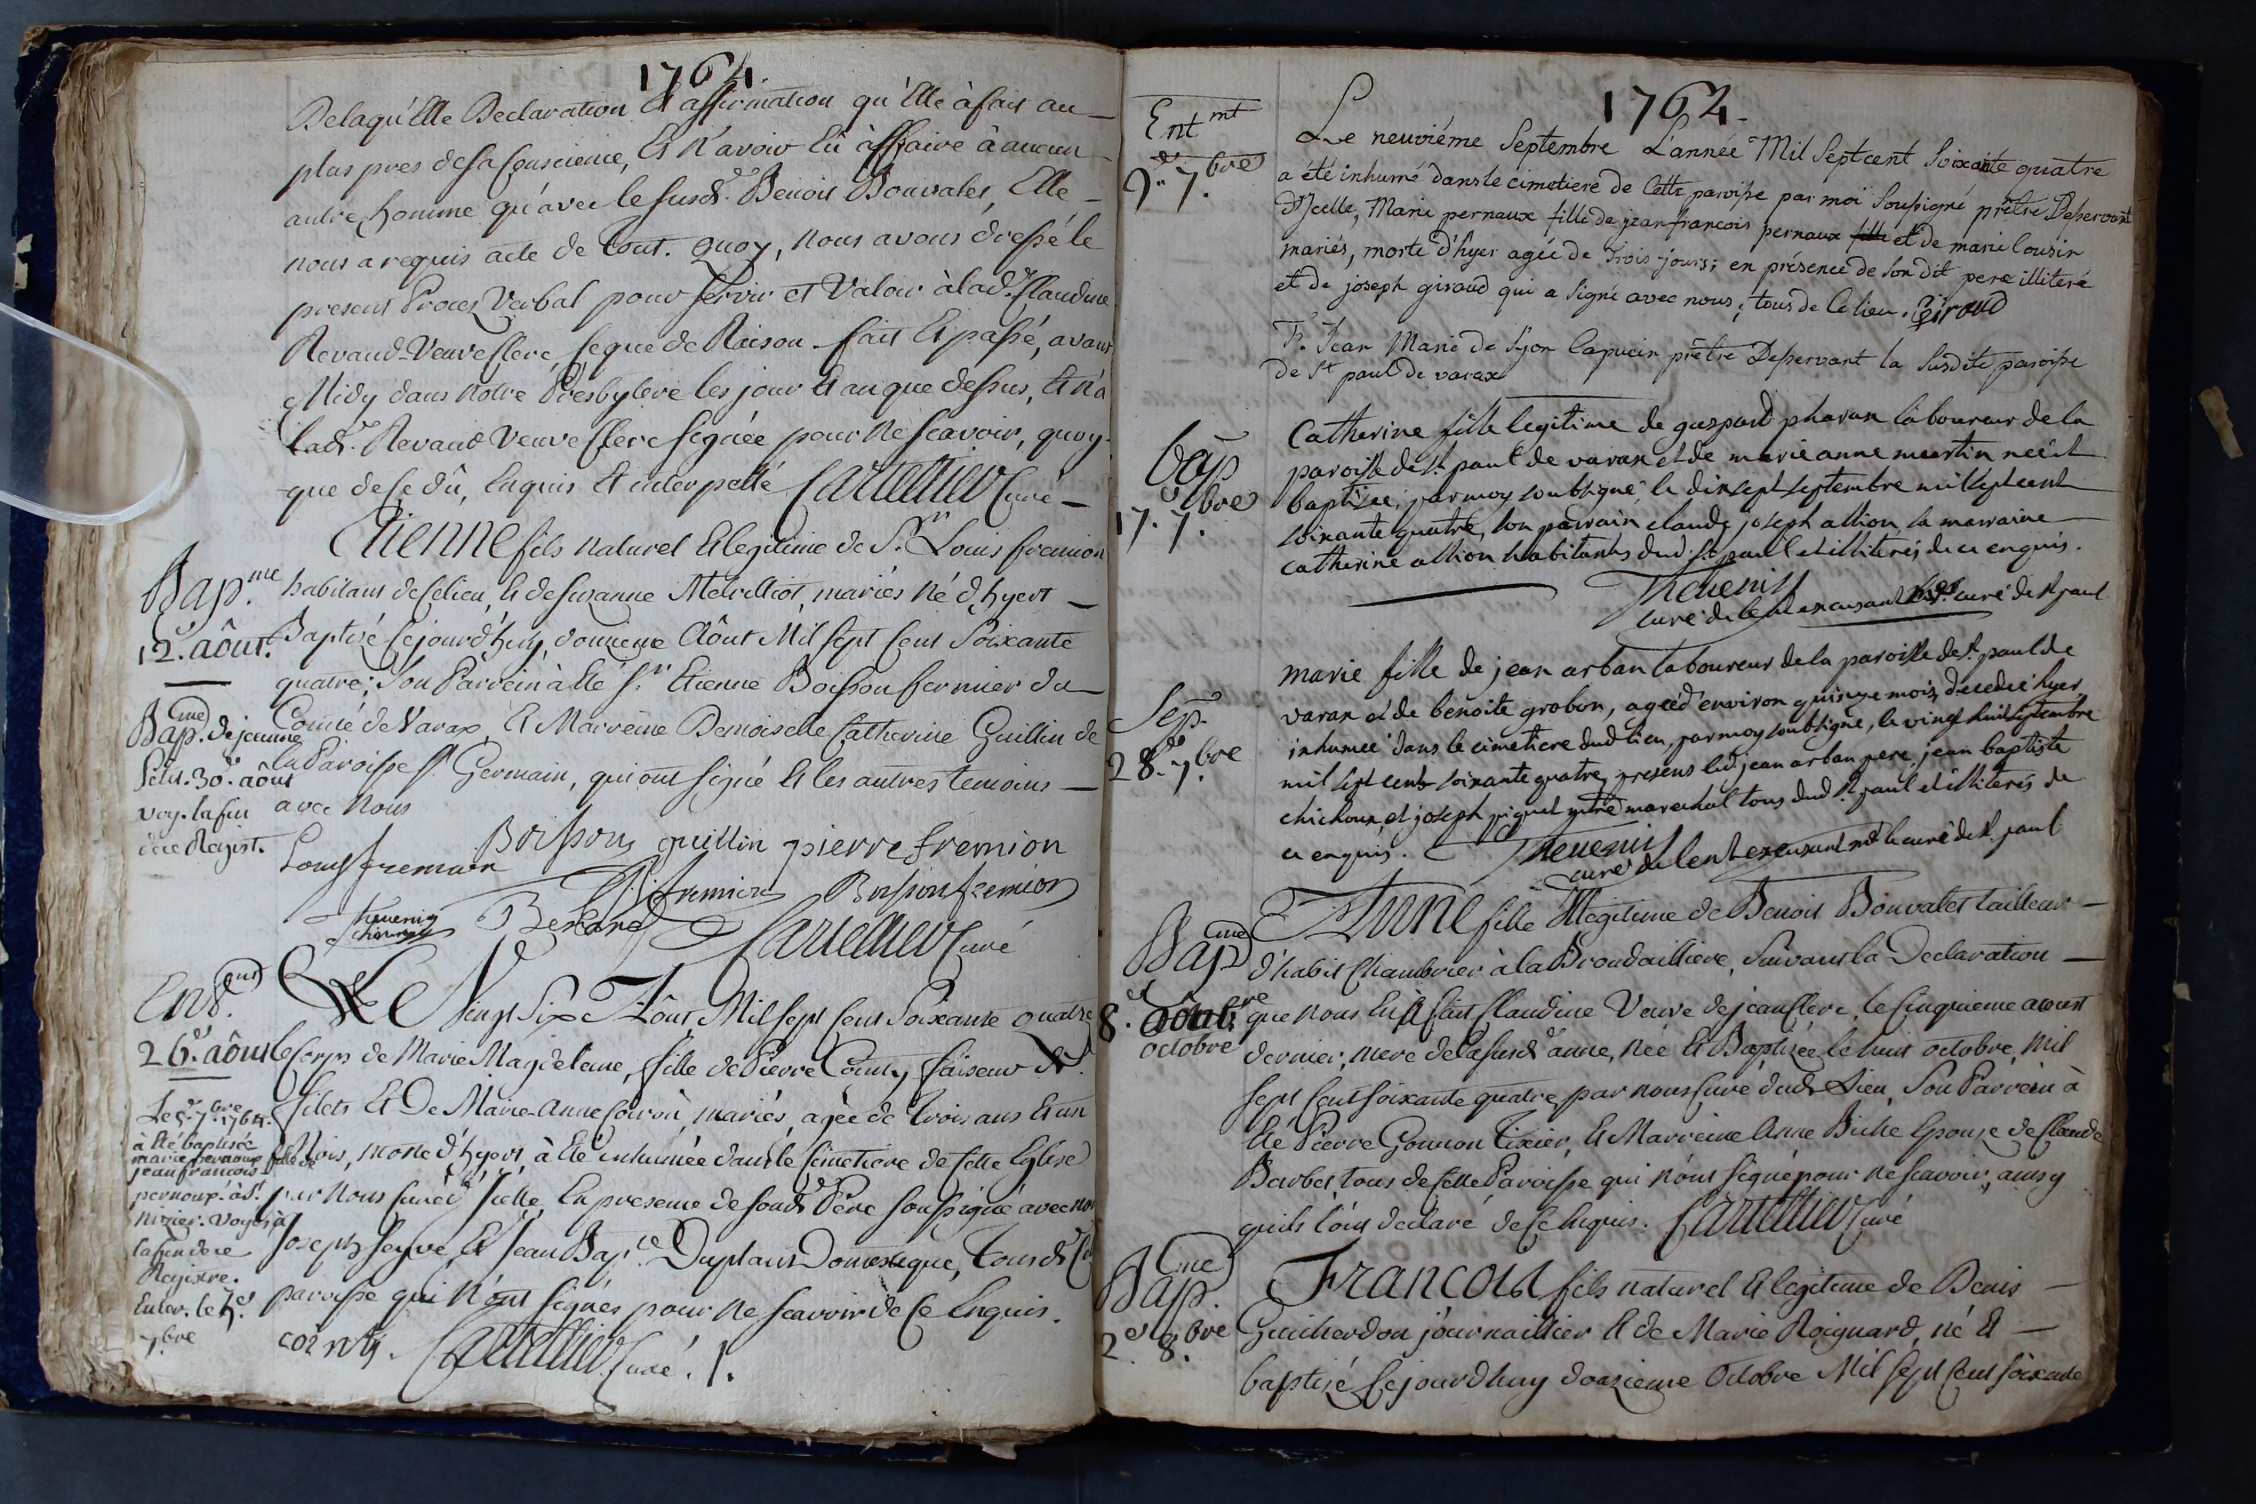 1764
De laqu'Elle Declaration Et affirmation qu'Elle à fait au
plus pres de sa Conscience, Et N'avoir Eû àffaire à aucun
autre homme qu'avec le susd. Benoit Bouvalet, Elle
nous a requis acte de tout. quoy, nous avons dressé le
present Proces Verbal pour servir et Valoir à lad. Claudine
Revaud Veuve Clerc, Ce que de Raison fait Et passé, avant
Midy dans notre Presbytere les jour Et an que dessus, Et n'a
lad. Revaud Veuve Clerc signée pour ne scavoir, quoy
que de Ce dû, Enquis Et interpellé Cartellier Curé
Bap.me
12.e aôut.
Etienne fils naturel Et legitime de S.r Louis fremion
habitant de Celieu, Et de suzanne, mariés né d'hyert
Baptisé Cejourd'huy, douzieme Aôut Mil sept Cent Soixante
quatre; Son Parrein à Eté s.r Etienne Boisson fermier du
Comté de Varax, Et Marreine Demoiselle Catherine Guillin de
la Paroisse S.t Germain, qui ont signé Et les autres temoins
avec Nous
Bap.me de jeanne
Petit. 30.e aôut
voy. la fin
de ce Regist.
Louis fremion Boisson guillin pierre fremion
fremion Boisson fremion
thevenin
Cartellier Curé
Ent.
26.e aôut
Le Vingt Six Aôut Mil sept Cent Soixante quatre
le Corps de Marie Magdelaine, fille de Pierre Cointy faiseur de
filets Et De Marie Anne, mariés, agée de trois ans Et un
Mois, morte d'hyert, à Eté inhumée dans le Cimetiere de Cette Eglise
par Nous Curé d'Icelle, En presence de sond. Père soussigné avec nous
Joseph, Et Jean Bap.te Duplant Domestique, tous de
paroisse qui n'ont signés pour ne scavoir de Ce Enquis.
Cointy. Cartellier Curé. /.
Le 5.e 7.bre 1764.
à Eté baptisée
marie pernoux fille de
jean francois
pernoux à S.t
nizier. Voyés à
la fin de ce
Registre.
Enter. le
7.bre
1764.
Ent.mt
9.e 7.bre
Le neuviéme Septembre L'année Mil Sept cent Soixante quatre
a été inhumé dans le cimetiere de Cette paroisse par moi Soussigné prêtre Desservant
d'Jcelle, Marie pernaux fille de jean françois pernaux fille et de marie cousin
mariés, morte d'hyer agée de trois jours; en présence de son dit pere illiteré
et de joseph giraud qui a signé avec nous; tous de Ce lieu. Giraud
F. Jean Marie de Lyon Capucin prêtre Desservant la susdite paroisse
de S.t paul de varax
bap
17.e 7.bre
Catherine fille legitime de gaspard pharax laboureur de la
paroisse de S.t paul de varax et de marie anne martin née et
baptisée par moy soubsigné, le dixsept septembre mil sept cent
soixante quatre, son parrain claude joseph allion sa marraine
catherine allion habitants dud. S.t paul et illiterés de ce enquis.
Thevenin
curé du lent excusant curé de St paul
Sep.
28.e 7.bre
marie fille de jean arban laboureur de la paroisse de S.t paul de
varax et de benoite grobon, agée d'environ quinze mois, decedée hyer
inhumée dans le cimetiere dud lieu, par moy soubsigné, le vingt huit septembre
mil sept cent soixante quatre, presens led jean arban pere, jean baptiste
chichoux, et joseph piquet maitre marechal tous dud St paul et illiterés de
ce enquis. Thevenin
curé du lent excusant mr le curé de St paul
Bap.me
8.e Aôut
octobre
Anne fille Illegitime de Benoit Bouvalet tailleur
d'habit Chambrier à la Broudailliere, Suivant la Declaration
que nous En à fait Claudine Veuve de jean Clerc, le Cinquieme aoust
dernier, mere de la susd. anne, née Et Baptisée le huit octobre, mil
sept Cent soixante quatre, par nous Curé dud. Lieu, Son Parrein à
Eté Pierre Gounon Tixier, Et Marreine Anne Biche Epouse de Claude
Barbet tous de Cette Paroisse qui n'ont signé pour ne scavoir, ainsy
quils l'ont declaré de Ce Enquis. Cartellier Curé
Bap.me
2.e 8.bre
Francois fils naturel Et legitime de Denis
Guicherdon journaillier Et de Marie Roignard, né Et
baptisé Cejourdhuy douzieme Octobre Mil sept Cent soixante